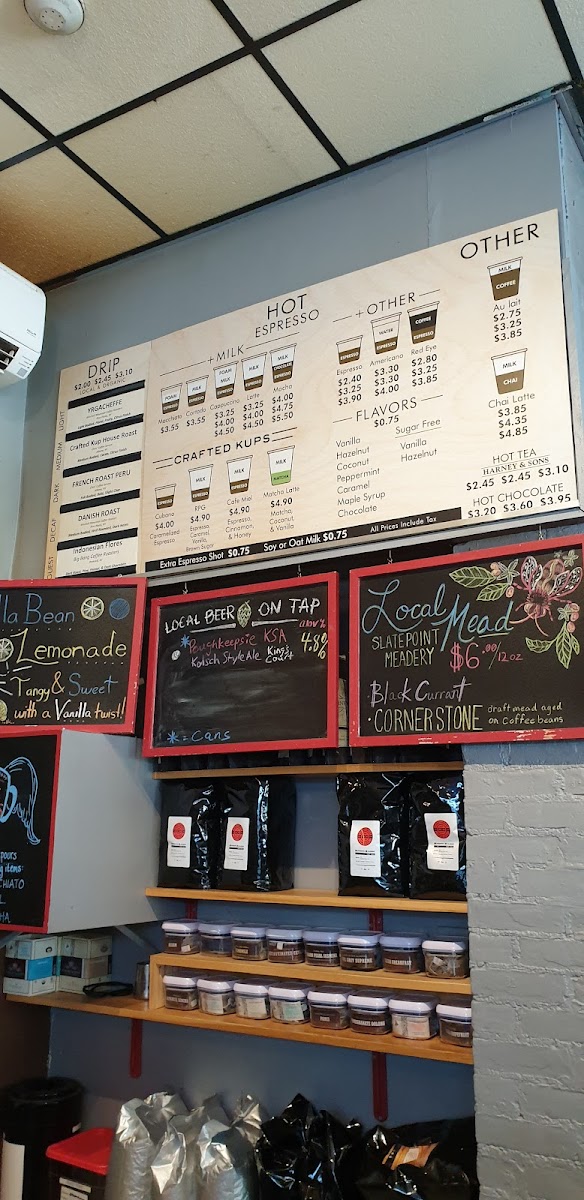 DRIP
$2.00 $2.45 $3.10
LOCAL & ORGANIC
LIGHT
MEDIUM
DARK
DECAF
GUEST
YRGACHEFFE
Crafted Kup House Roast
FRENCH ROAST PERU
DANISH ROAST
Indonesian Flores
HOT
ESPRESSO
+MILK
FOAM
ESPRESSO
MILK
ESPRESSO
FOAM
MILK
ESPRESSO
MILK
ESPRESSO
MILK
CHOCOLATE
ESPRESSO
Macchiato
$3.55
Cortado
$3.55
Cappuccino
$3.25
$4.00
$4.50
Latte
$3.25
$4.00
$4.50
Mocha
$4.00
$4.75
$4.50
+OTHER
ESPRESSO
WATER
ESPRESSO
COFFEE
ESPRESSO
Espresso
$2.40
$3.25
$3.90
Americano
$3.30
$3.30
$4.00
Red Eye
$2.80
$3.25
$3.85
CRAFTED KUPS
ESPRESSO
MILK
ESPRESSO
MILK
ESPRESSO
MILK
MATCHA
Cubano
$4.00
Caramelized
Espresso
RPG
$4.90
Espresso,
Caramel,
Vanilla,
Brown Sugar
Cafe Miel
$4.90
Espresso,
Cinnamon,
& Honey
Matcha Latte
$4.90
Matcha,
Coconut,
& Vanilla
FLAVORS
$0.75
Vanilla
Hazelnut
Coconut
Peppermint
Caramel
Maple Syrup
Chocolate
Sugar Free
Vanilla
Hazelnut
Extra Espresso Shot $0.75 Soy or Oat Milk $0.75 All Prices Include Tax
OTHER
MILK
COFFEE
Au lait
$2.75
$3.25
$3.85
MILK
CHAI
Chai Latte
$3.85
$4.35
$4.85
HOT TEA
HARNEY & SONS
$2.45 $2.45 $3.10
HOT CHOCOLATE
$3.20 $3.60 $3.95
lla Bean
Lemonade
Tangy & Sweet
with a Vanilla twist!
LOCAL BEER ON TAP
Poughkeepsie KSA
Kolsch Style Ale King's Court
4.8%
* = Cans
Local Mead
SLATEPOINT
MEADERY
$6.00/12oz
Black Currant
CORNERSTONE draft mead aged
on coffee beans
pours
g items:
CHIATO
L
HA